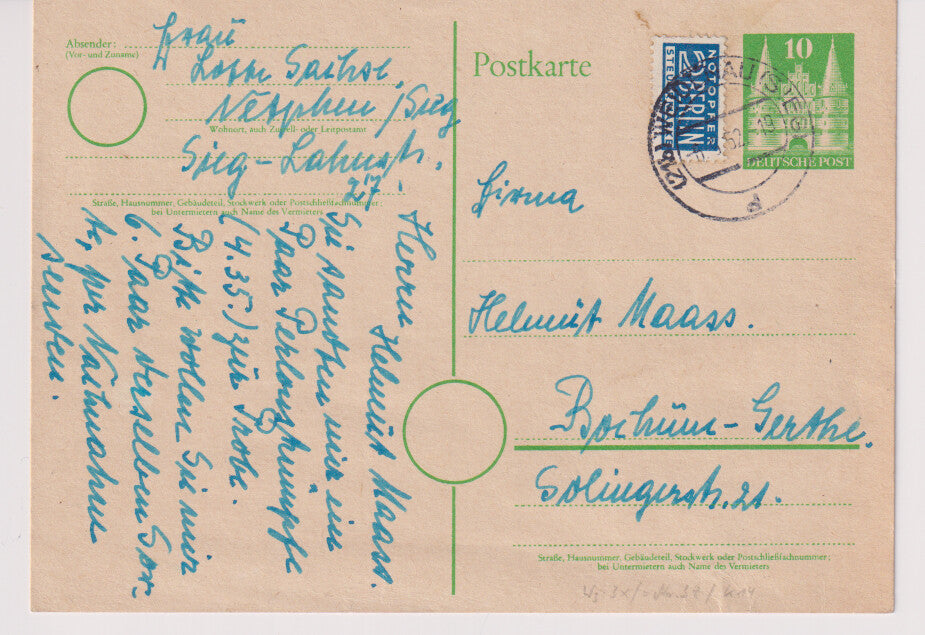 Absender: Frau
(Vor- und Zuname)
Lotte Sachse,
Netphen/Sieg
Wohnort, auch Zustell- oder Leitpostamt
Sieg-Lahnstr.
27.
Straße, Hausnummer, Gebäudeteil, Stockwerk oder Postschließfachnummer;
bei Untermietern auch Name des Vermieters
Herrn Helmut Maass.
Sie sandten mir ein
Paar Perlonstrümpfe
(4.35.) zur Probe.
Bitte wollen Sie mir
6. Paar derselben Sor-
te, per Nachnahme
senden.
Postkarte
NOTOPFER
2 BERLIN
STEUERMARKE
10
DEUTSCHE POST
(21b)
52
d
Firma
Helmut Maass.
Bochum-Gerthe.
Solingerstr. 21.
Straße, Hausnummer, Gebäudeteil, Stockwerk oder Postschließfachnummer;
bei Untermietern auch Name des Vermieters